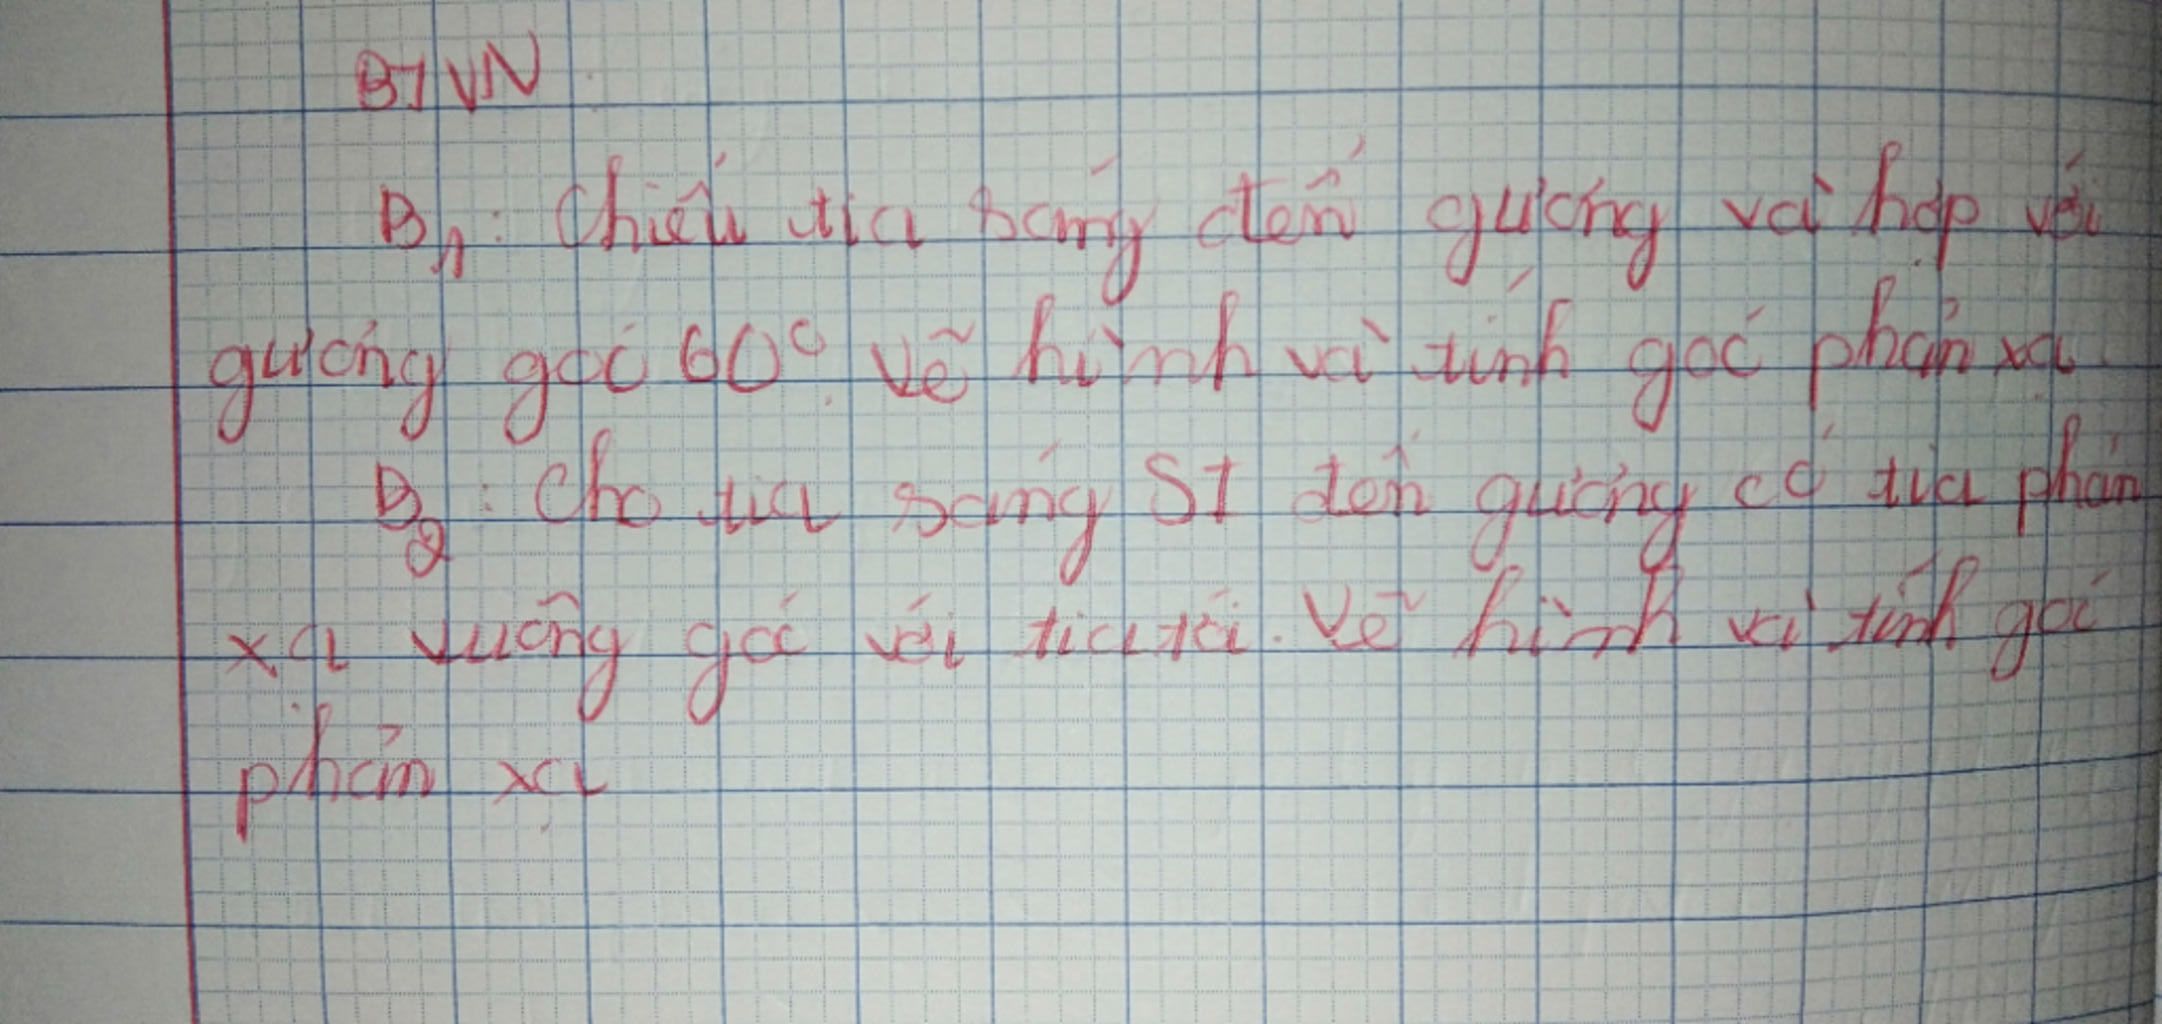 BTVN
B1: Chiếu tia sáng đến gương và hợp với
gương góc 60° vẽ hình và tính góc phản xạ
B2: Cho tia sáng SI đến gương có tia phản
xạ vuông góc với tia tới. Vẽ hình và tính góc
phản xạ